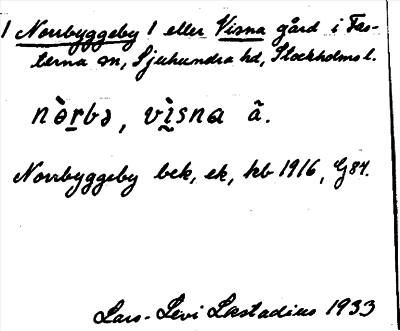 1 Norrbyggeby 1 eller Visna gård i Fas-
terna sn, Sjuhundra hd, Stockholms l.
nə̀rbə, vìsna ã.
Norrbyggeby bek, ek, hb 1916, G84.
Lars-Levi Læstadius 1933